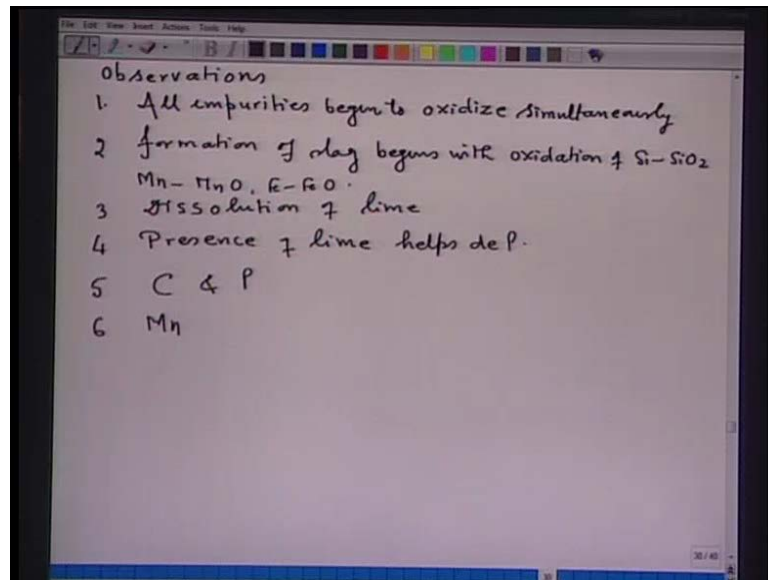 File Edit View Insert Actions Tools Help
B I
Observations
1. All impurities begin to oxidize simultaneously
2 formation of slag begins with oxidation of Si-SiO2
Mn-MnO, Fe-FeO.
3 Dissolution of lime
4 Presence of lime helps de P.
5 C & P
6 Mn
30/40